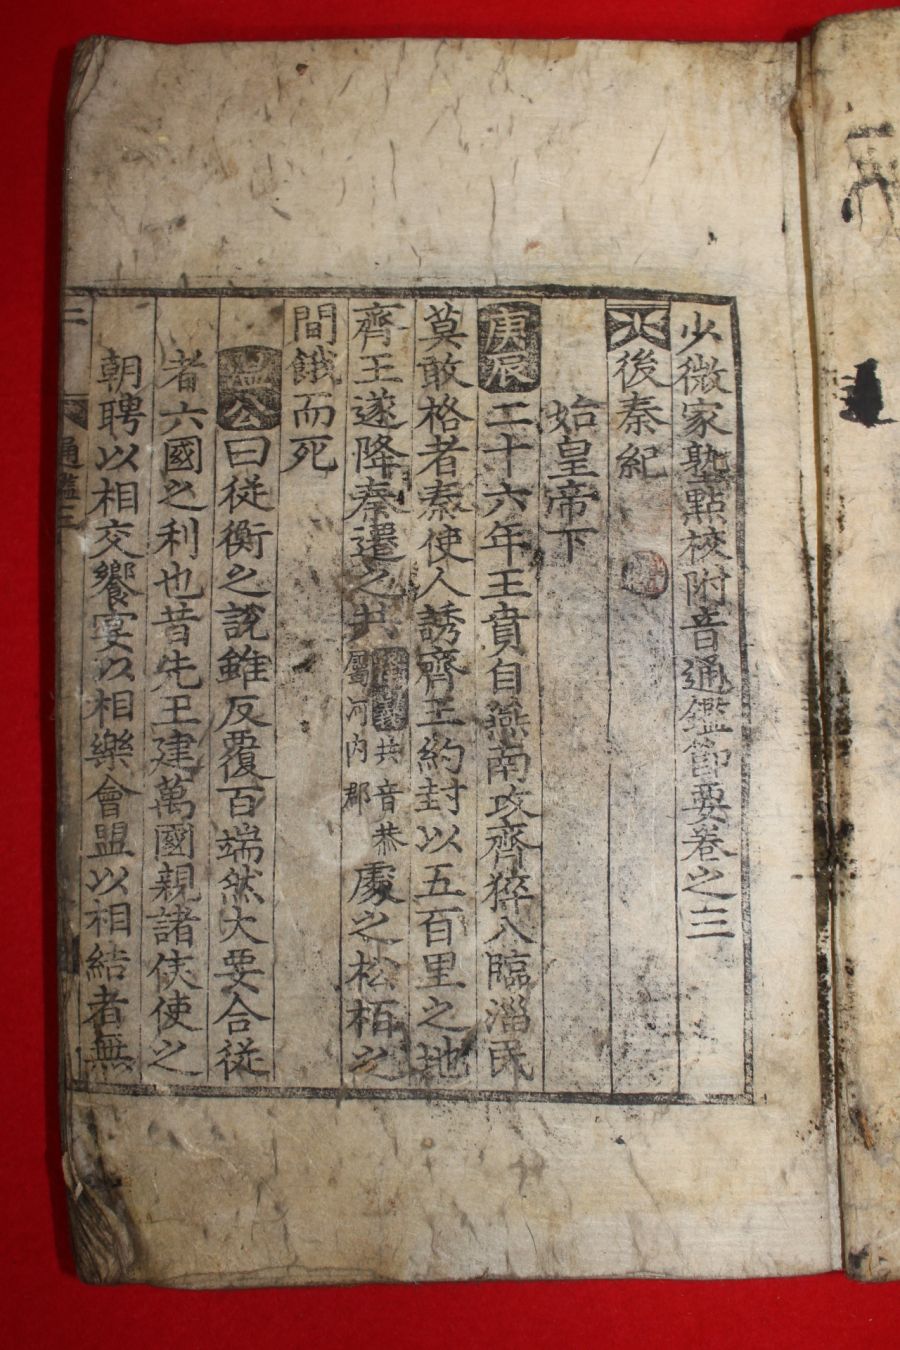 少微家塾點校附音通鑑節要卷之三
後秦紀
始皇帝下
庚辰二十六年王賁自燕南攻齊猝入臨淄民
莫敢格者秦使人誘齊王約封以五百里之地
齊王遂降秦遷之共
共音恭
屬河内郡
處之松栢之
間餓而死
溫公曰從衡之說雖反覆百端然大要合從
者六國之利也昔先王建萬國親諸侯使之
朝聘以相交饗宴以相樂會盟以相結者無
通鑑三